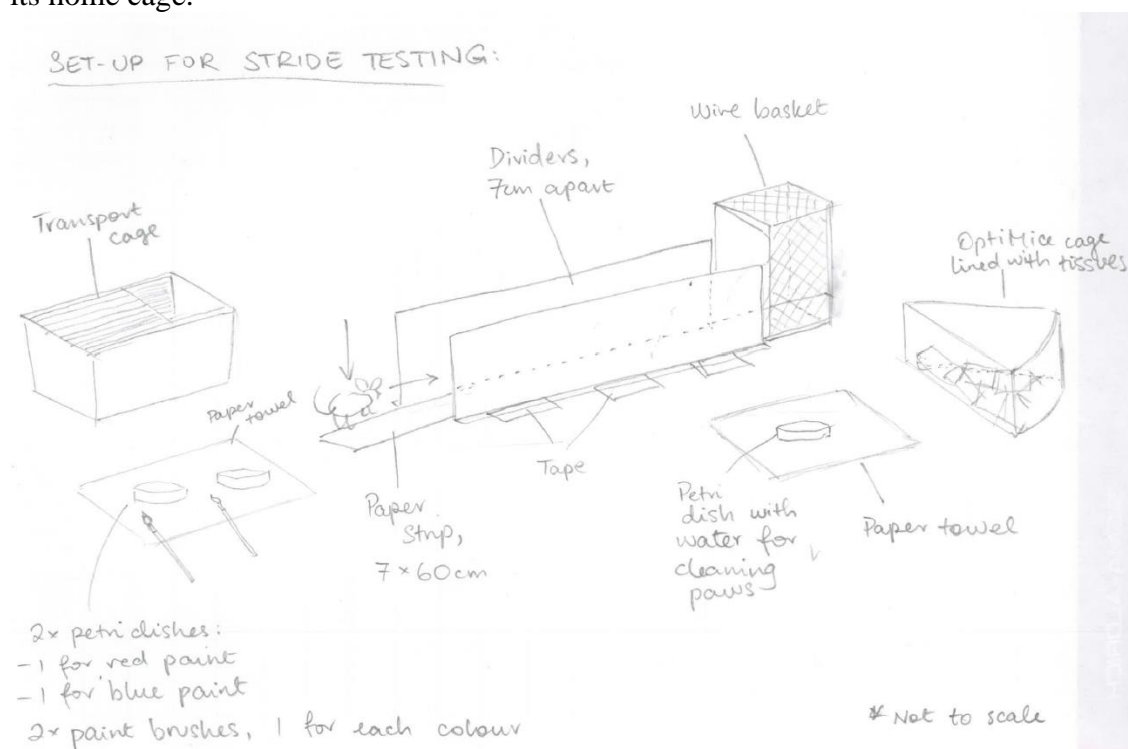 its home cage.
SET-UP FOR STRIDE TESTING:
Wire basket
Dividers,
7cm apart
Transport
cage
OptiMice cage
lined with tissues
Paper
towel
Tape
Paper
Strip,
7 × 60cm
Petri
dish with
water for
cleaning
paws
Paper towel
2x petri dishes:
-1 for red paint
-1 for blue paint
2x paint brushes, 1 for each colour
* Not to scale